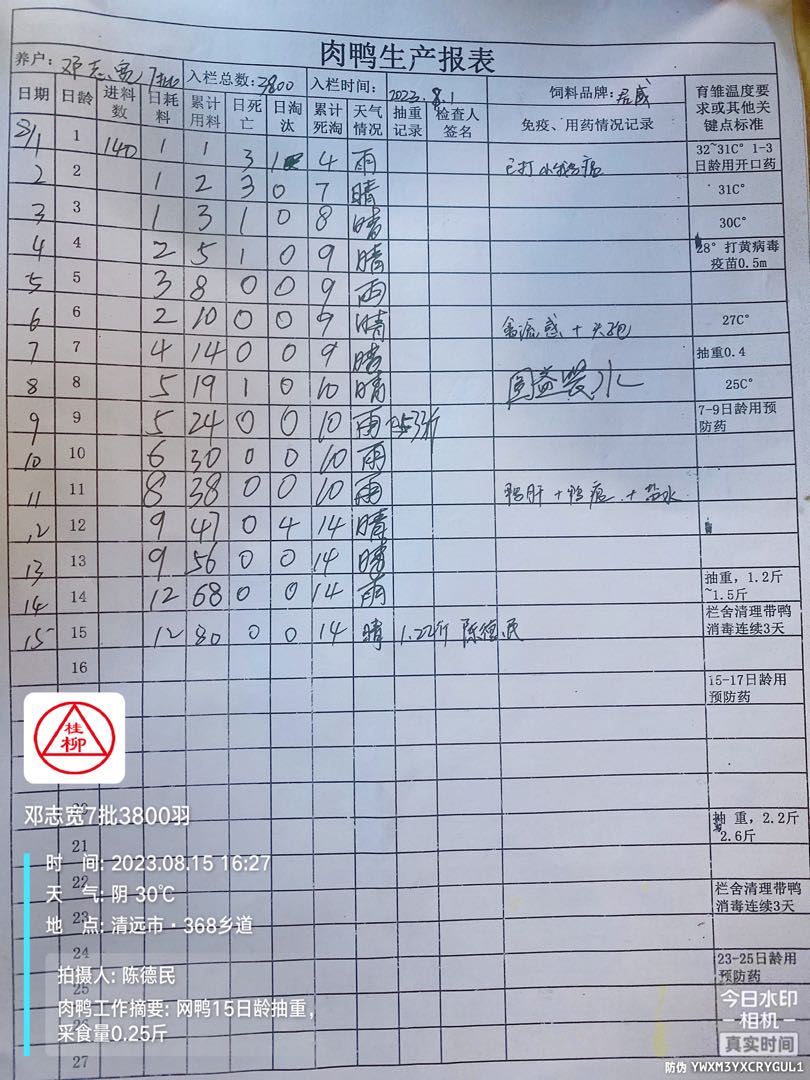 肉鸭生产报表
养户: 邓志宽 7批 入栏总数:3800 入栏时间: 2023.8.1 饲料品牌:
日期 日龄 进料数 日耗料 累计用料 日死亡 日淘汰 累计死淘 天气情况 抽重记录 检查人签名 免疫、用药情况记录 育雏温度要求或其他关键点标准
8/1 1 140 1 1 3 1 4 雨 32~31C° 1-3日龄用开口药
2 2 1 2 3 0 7 晴 31C°
3 3 1 3 1 0 8 晴 30C°
4 4 2 5 1 0 9 晴 28° 打黄病毒疫苗0.5m
5 5 3 8 0 0 9 雨
6 6 2 10 0 0 9 晴 禽流感+头孢 27C°
7 7 4 14 0 0 9 晴 抽重0.4
8 8 5 19 1 0 10 晴 水 25C°
9 9 5 24 0 0 10 雨 7-9日龄用预防药
10 10 6 30 0 0 10 雨
11 11 8 38 0 0 10 雨 鸭肝+鸭瘟+盐水
12 12 9 47 0 4 14 晴
13 13 9 56 0 0 14 晴
14 14 12 68 0 0 14 雨 抽重，1.2斤~1.5斤
15 15 12 80 0 0 14 晴 1.22斤 陈德民 栏舍清理带鸭消毒连续3天
16
15-17日龄用预防药
桂柳
邓志宽7批3800羽
抽 重，2.2斤
2.6斤
21
时 间: 2023.08.15 16:27
22 栏舍清理带鸭消毒连续3天
天 气: 阴 30℃
23
地 点: 清远市·368乡道
24 23-25日龄用预防药
拍摄人: 陈德民
25
肉鸭工作摘要: 网鸭15日龄抽重，
采食量0.25斤
27
今日水印
相机
真实时间
防伪 YWXM3YXCRYGUL1